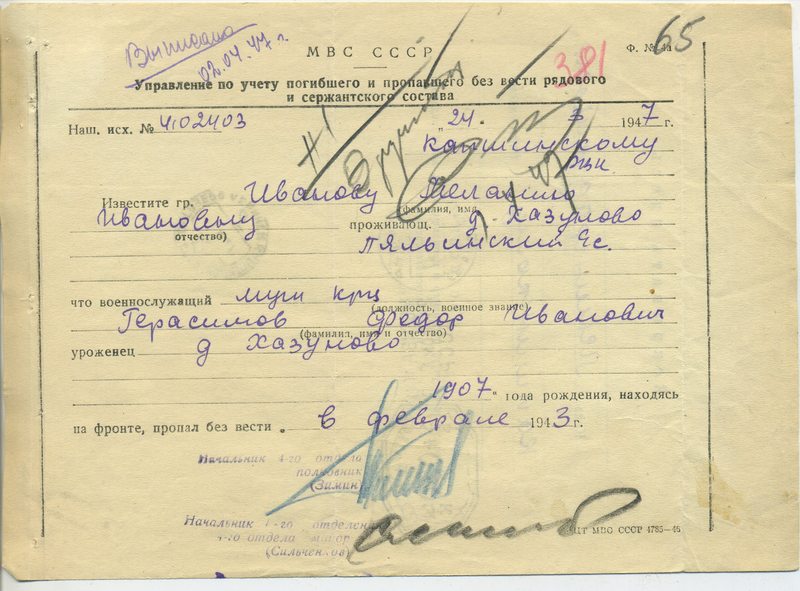 Выписано
02.04.47 г.
МВС СССР
381
Ф. № 4а
65
Управление по учету погибшего и пропавшего без вести рядового
и сержантского состава
Наш. исх. № 402403
"24" 3 1947 г.
Кашинскому
РВК
Известите гр. Иванову
(фамилия, имя,
Ивановну проживающ. д Хазуново
отчество)
Пяльинский с/с.
что военнослужащий муж крц
(должность, военное звание)
Герасимов Федор Иванович
(фамилия, имя и отчество)
уроженец д Хазуново
1907 года рождения, находясь
на фронте, пропал без вести в феврале 1943 г.
Начальник 4-го отдела
полковник
(Зимин)
Начальник 1-го отделения
4-го отдела майор
(Сильченков)
МВС СССР 4785-46